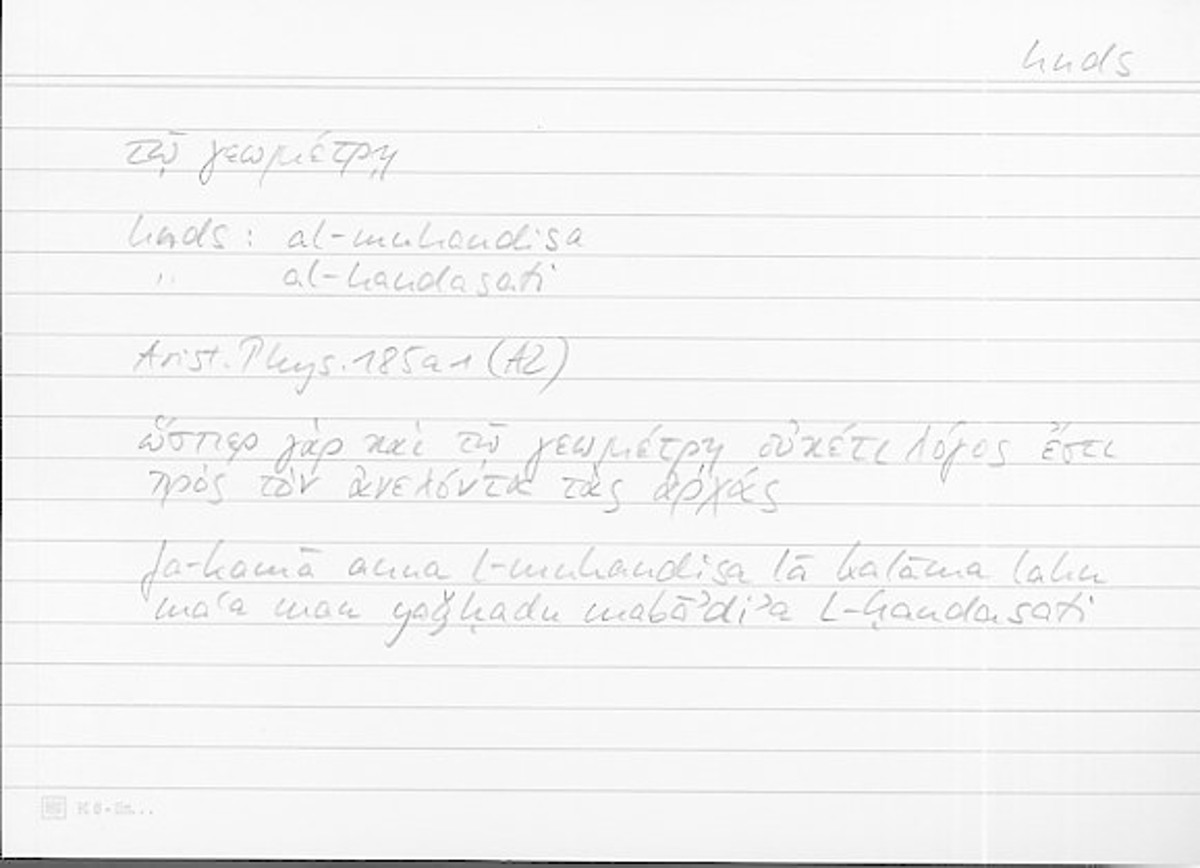 hnds
τῷ γεωμέτρῃ
hnds : al-muhandisa
" al-handasati
Arist. Phys. 185a1 (A2)
ὥσπερ γὰρ καὶ τῷ γεωμέτρῃ οὐκέτι λόγος ἔστι
πρὸς τὸν ἀνελόντα τὰς ἀρχάς
fa-kamā anna l-muhandisa lā kalāma lahu
maʿa man yaǧḥadu mabāʾdiʾa l-ḥandasati